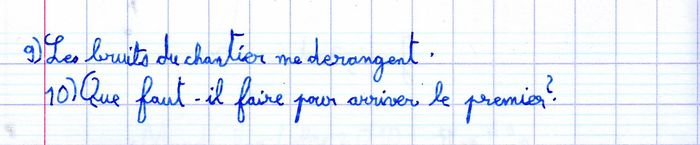 9) Les bruits du chantier me derangent.
10) Que faut-il faire pour arriver le premier?